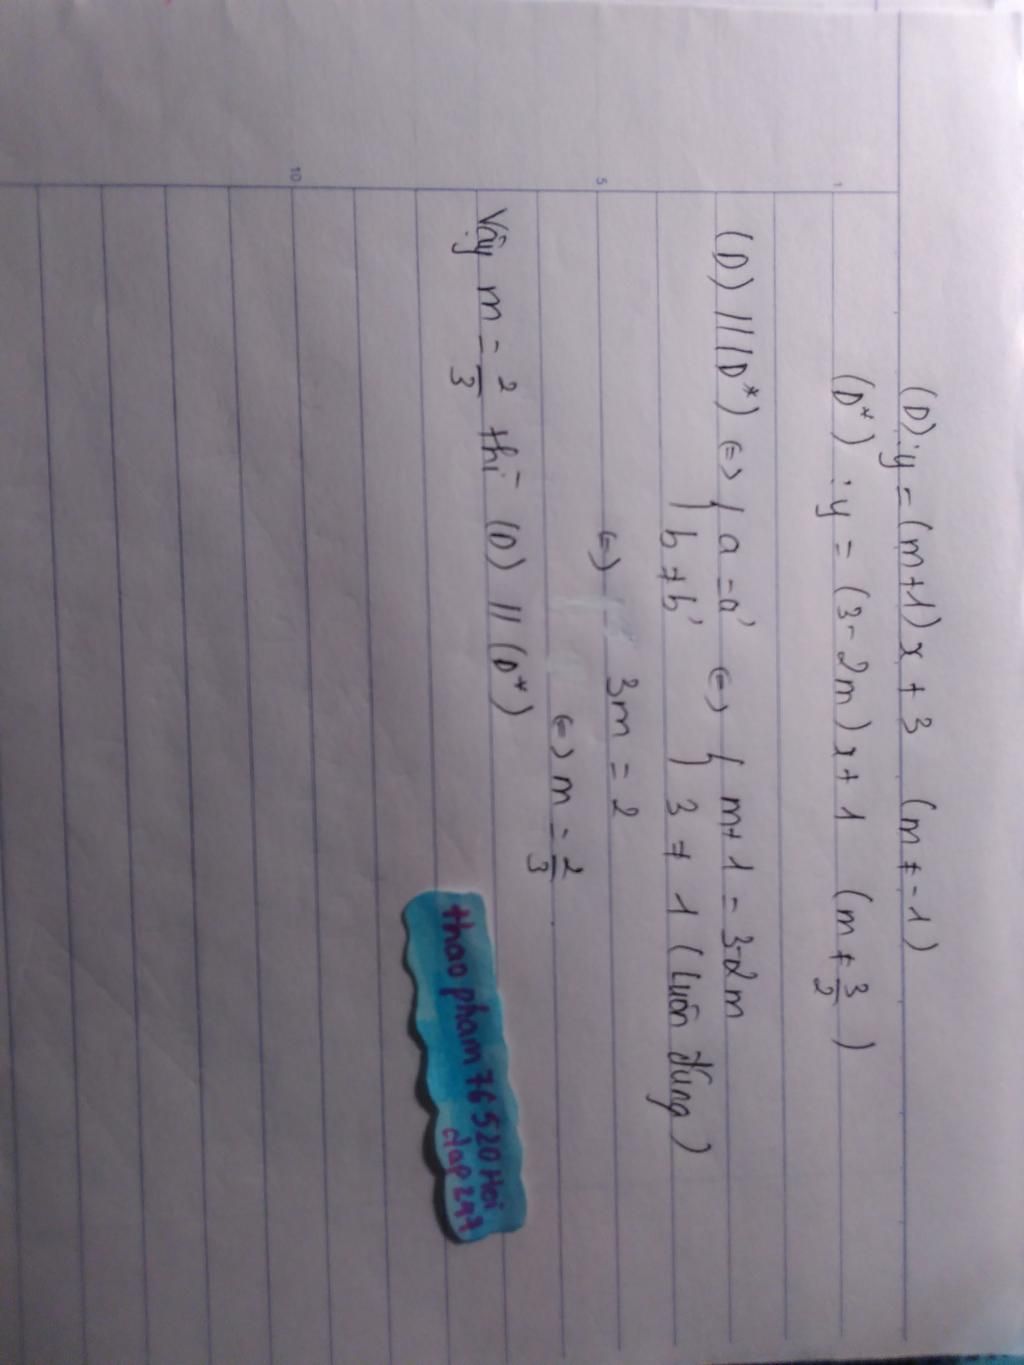 (D): y = (m+1)x + 3 (m ≠ -1)
(D*): y = (3-2m)x + 1 (m ≠ 3/2)
1
(D) // (D*) ⇔ { a = a' ⇔ { m+1 = 3-2m
b ≠ b' 3 ≠ 1 (luôn đúng)
5
⇔ 3m = 2
⇔ m = 2/3
Vậy m = 2/3 thì (D) // (D*)
thao pham 76520 Hoi
dap 247
10